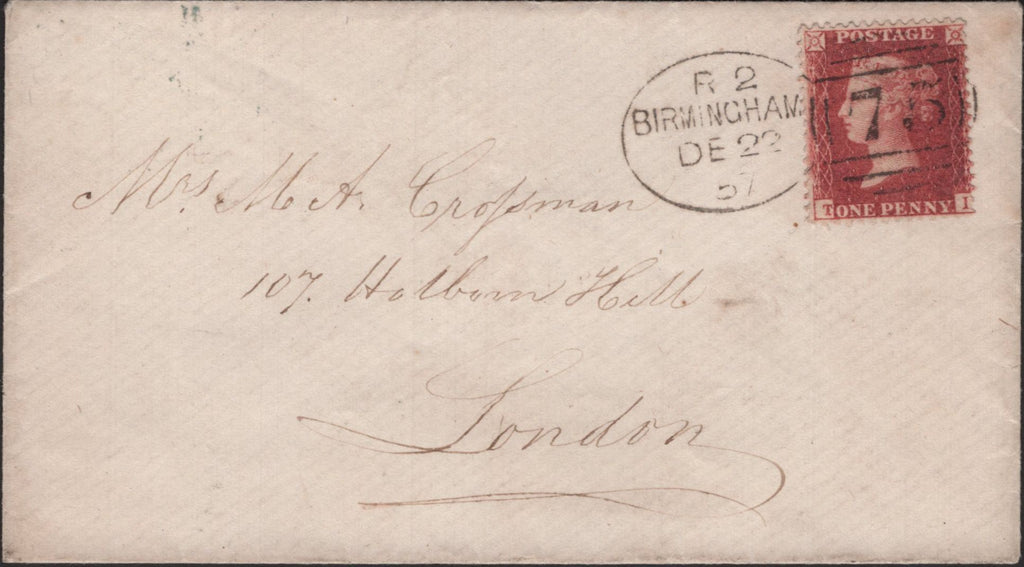 R 2
BIRMINGHAM
DE 22
57
POSTAGE
75
T ONE PENNY I
Mrs. M A. Croſsman
107. Holborn Hill
London